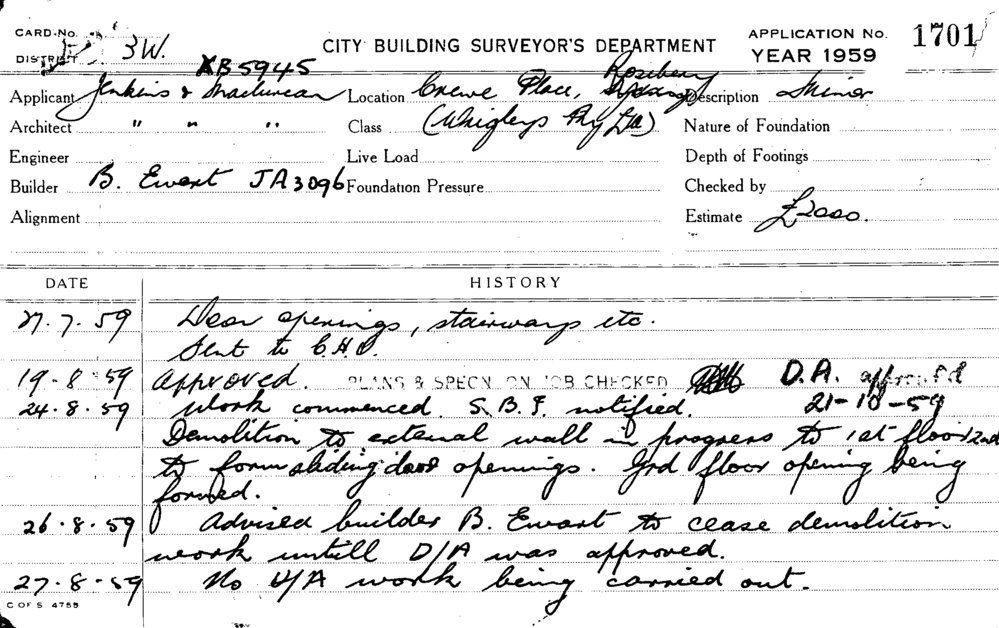 CARD No.
DISTRICT 3W.
CITY BUILDING SURVEYOR'S DEPARTMENT
APPLICATION No. 1701
YEAR 1959
XB5945
Applicant Jenkins & Maclurcan Location Crewe Place, Rosebery Description Minor
Architect " " " Class (Whigleys Pty Ltd) Nature of Foundation
Engineer Live Load Depth of Footings
Builder B. Ewart JA3096 Foundation Pressure Checked by
Alignment Estimate £2000.
DATE HISTORY
27.7.59 Door openings, stairways etc.
Sent to C.H.O.
19.8.59 Approved. PLANS & SPECN ON JOB CHECKED D.A. approved
24.8.59 Work commenced. S.B.I. notified. 21-10-59
Demolition to external wall in progress to 1st floor 2nd
to form sliding door openings. Grd floor opening being
formed.
26.8.59 Advised builder B. Ewart to cease demolition
work untill D/A was approved.
27-8-59 No D/A work being carried out.
C OF S 4755